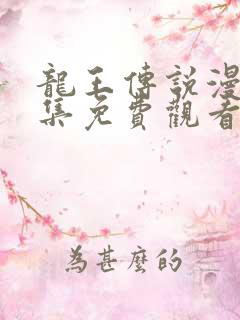 龍王傳說漫
集免費觀看
為甚麼的